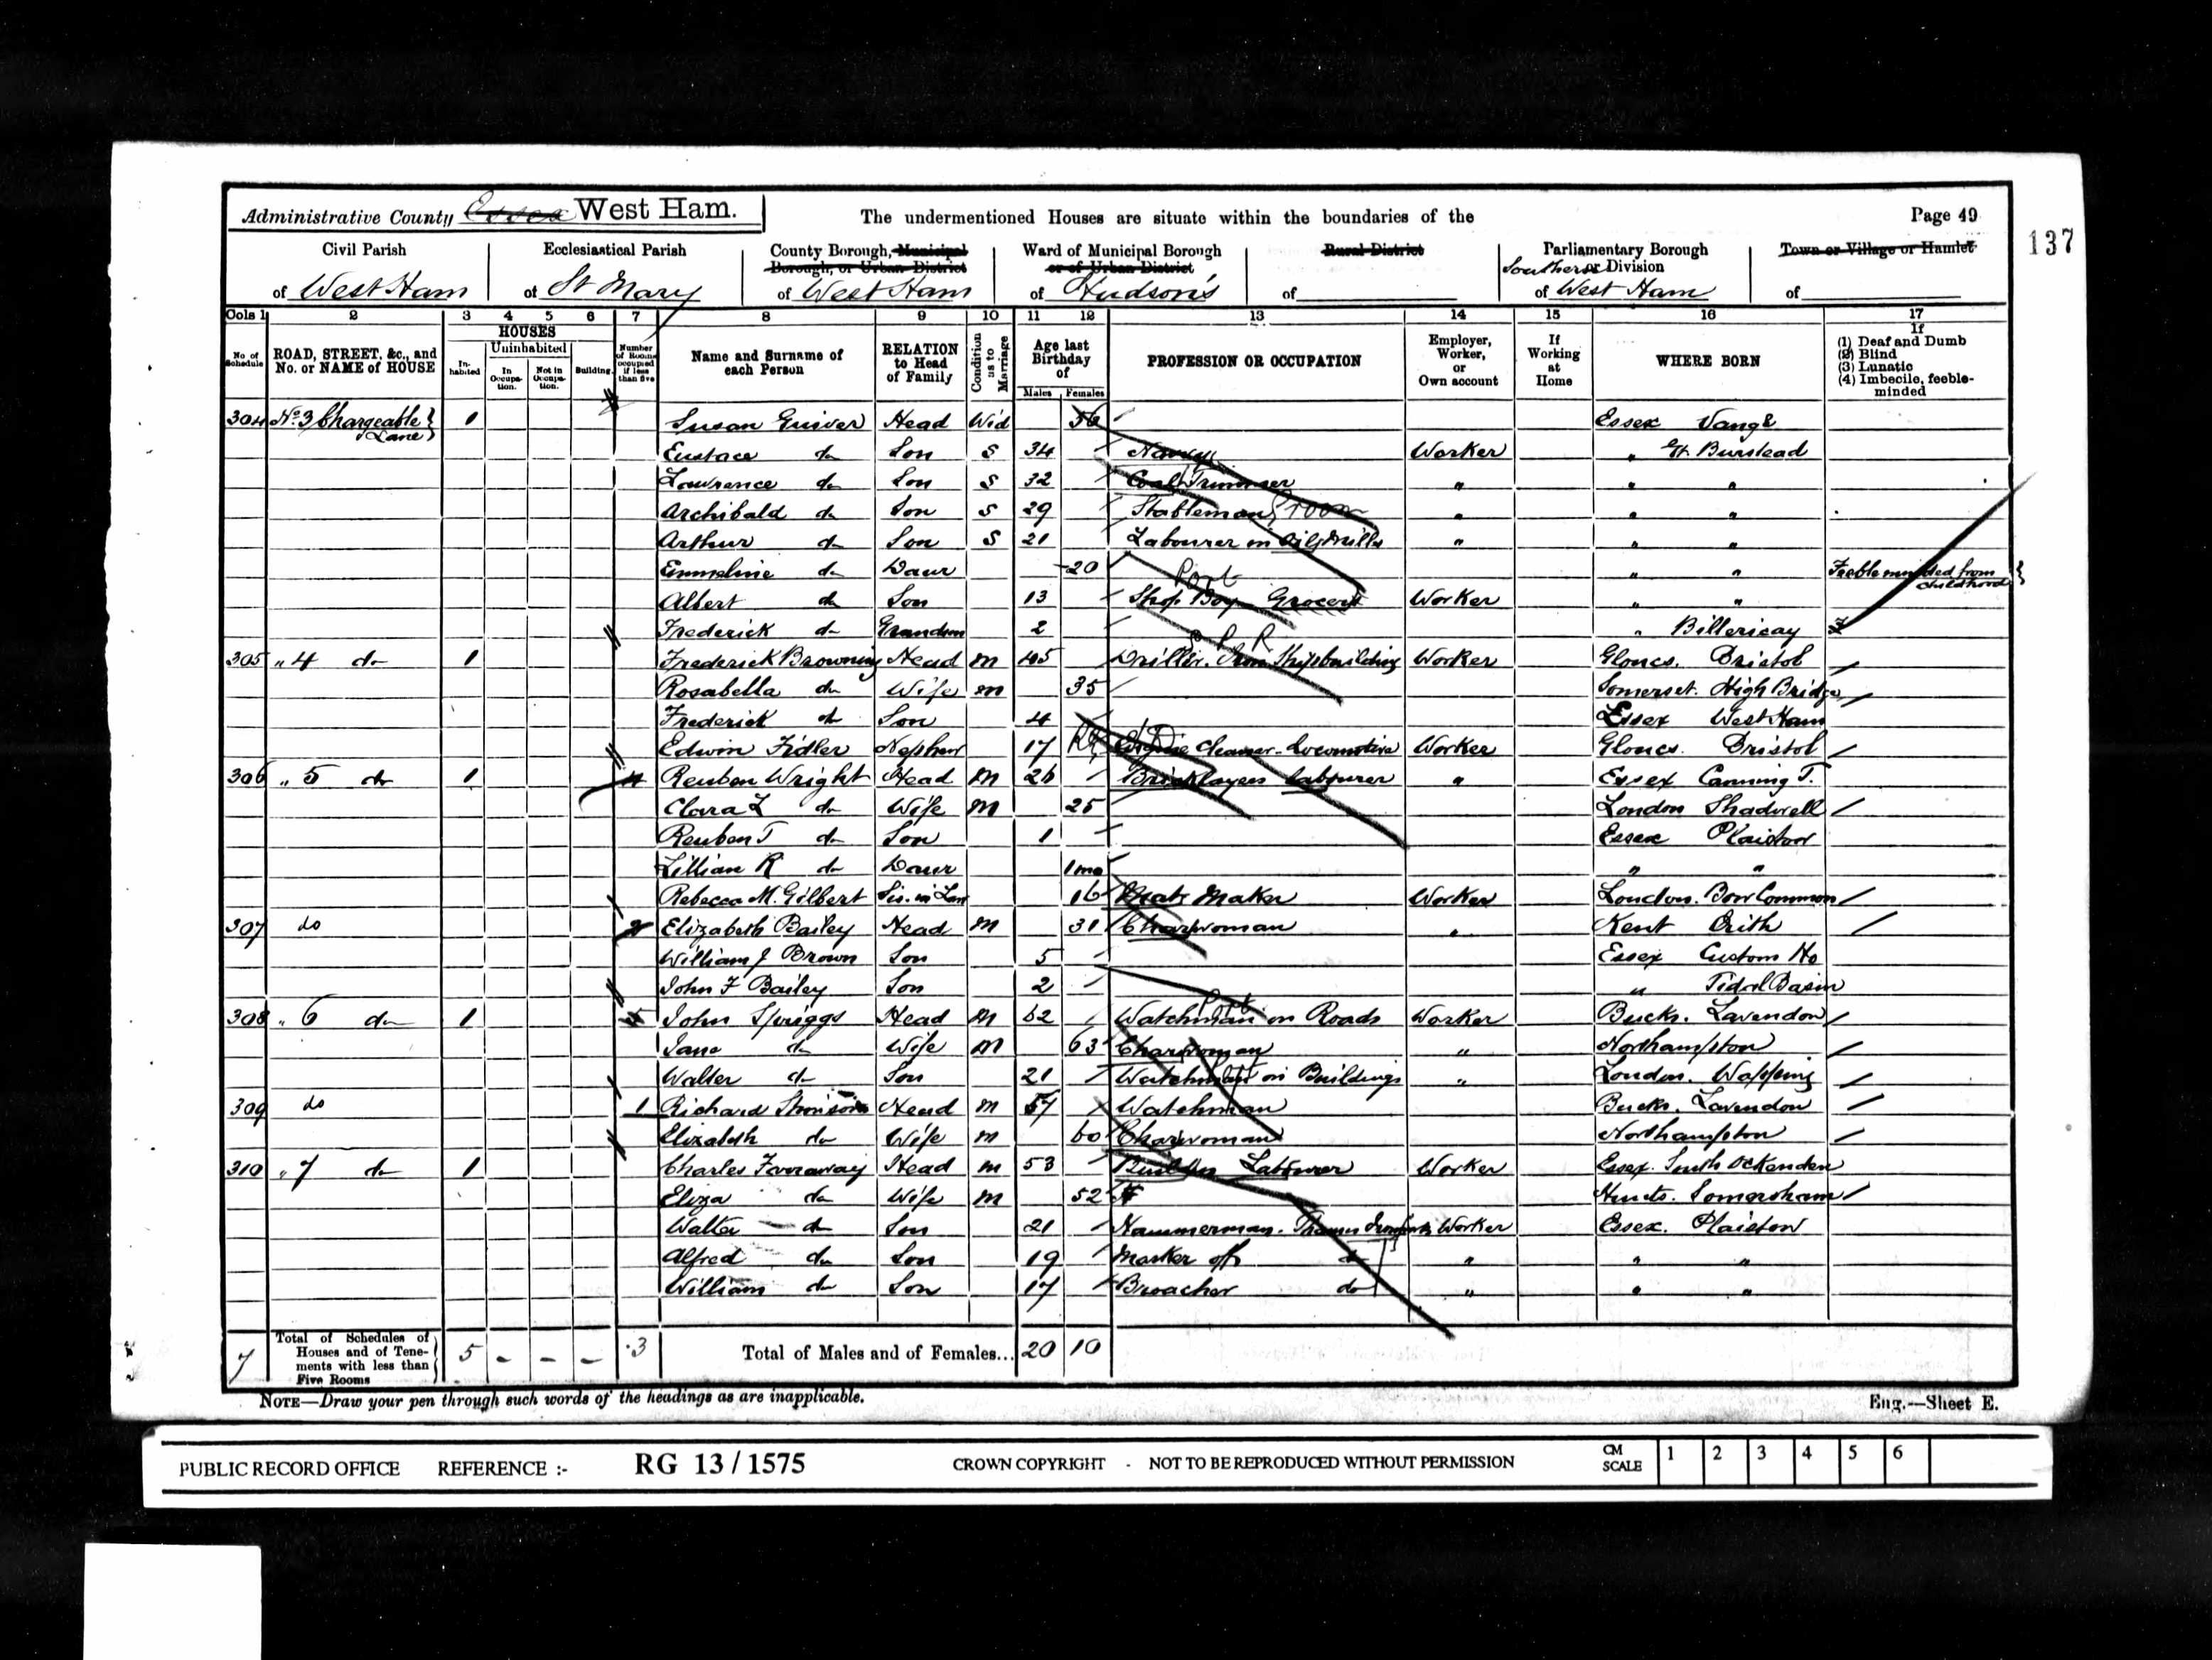 Administrative County Essex West Ham.
The undermentioned Houses are situate within the boundaries of the
Page 49
137
Civil Parish of West Ham
Ecclesiastical Parish of St Mary
County Borough, Municipal Borough, or Urban District of West Ham
Ward of Municipal Borough or of Urban District of Hudson's
Rural District of
Parliamentary Borough or Division of Southern West Ham
Town or Village or Hamlet of
Cols 1 2 3 4 5 6 7 8 9 10 11 12 13 14 15 16 17
No of Schedule
ROAD, STREET, &c., and No. or NAME of HOUSE
HOUSES
In-habited
Uninhabited
In Occupa-tion.
Not in Occupa-tion.
Building.
Number of Rooms occupied if less than five
Name and Surname of each Person
RELATION to Head of Family
Condition as to Marriage
Age last Birthday of
Males Females
PROFESSION OR OCCUPATION
Employer, Worker, or Own account
If Working at Home
WHERE BORN
If (1) Deaf and Dumb (2) Blind (3) Lunatic (4) Imbecile, feeble-minded
304 No 3 Chargeable Lane 1 Susan Guiver Head Wid 56 Essex Vange
Eustace do Son S 34 Navvy Worker " Gt. Burstead
Lawrence do Son S 32 Coal Trimmer " " "
Archibald do Son S 29 Stableman Groom " " "
Arthur do Son S 21 Labourer in Oil Mills " " "
Emmeline do Daur 20 " " Feeble minded from childhood
Albert do Son 13 Shop Boy Grocers Worker " "
Frederick do Grandson 2 " Billericay
305 " 4 do 1 Frederick Browning Head M 45 Driller. Iron Shipbuilding Worker Gloucs. Bristol
Rosabella do Wife M 35 Somerset. High Bridge
Frederick do Son 4 Essex West Ham
Edwin Fidler Nephew 17 Engine Cleaner - Locomotive Worker Gloucs. Bristol
306 " 5 do 1 4 Reuben Wright Head M 26 Bricklayers labourer " Essex Canning T.
Clara L do Wife M 25 London Shadwell
Reuben T do Son 1 Essex Plaistow
Lillian R do Daur 1mo " "
Rebecca M. Gilbert Sis. in Law 16 Maker Worker London. Bow Common
307 do 2 Elizabeth Bailey Head M 31 Charwoman " Kent Erith
William J Brown Son 5 Essex Custom Ho
John F Bailey Son 2 " Tidal Basin
308 " 6 do 1 John Spriggs Head M 62 Watchman on Roads Worker Bucks. Lavendon
Jane do Wife M 63 Charwoman " Northampton
Walter do Son 21 Watchman on Buildings " London. Wapping
309 do 1 Richard Head M 57 Watchman Bucks. Lavendon
Elizabeth do Wife M 60 Charwoman Northampton
310 " 7 do 1 Charles Farraway Head M 53 Builders Labourer Worker Essex. South Ockenden
Eliza do Wife M 52 Hunts. Somersham
Walter do Son 21 Hammerman. Thames Ironworks Worker Essex. Plaistow
Alfred do Son 19 Marker off do " " "
William do Son 17 Broacher do " " "
7 Total of Schedules of Houses and of Tene-ments with less than Five Rooms 5 - - - 3 Total of Males and of Females... 20 10
NOTE—Draw your pen through such words of the headings as are inapplicable.
Eng.—Sheet E.
PUBLIC RECORD OFFICE REFERENCE :- RG 13 / 1575 CROWN COPYRIGHT - NOT TO BE REPRODUCED WITHOUT PERMISSION CM SCALE 1 2 3 4 5 6